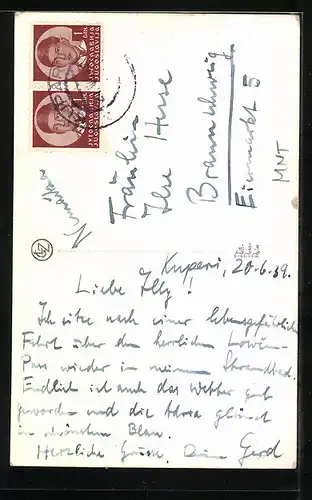 Fräulein
Ilse
Braunschweig
Eiermarkt 5
MNT
Kupari, 20-6.39.
Liebe Illy!
Ich sitze nach einer lebensgefährlichen
Fahrt über den herrlichen Lowčen-
Pass wieder in meinem Strandbad.
Endlich ist auch das Wetter gut
geworden und die Adria glänzt
in schönstem Blau.
Herzliche Grüsse. Dein Gerd
ЈУГОСЛАВИЈА
JUGOSLAVIJA
ЈУГОСЛАВИЈА
JUGOSLAVIJA